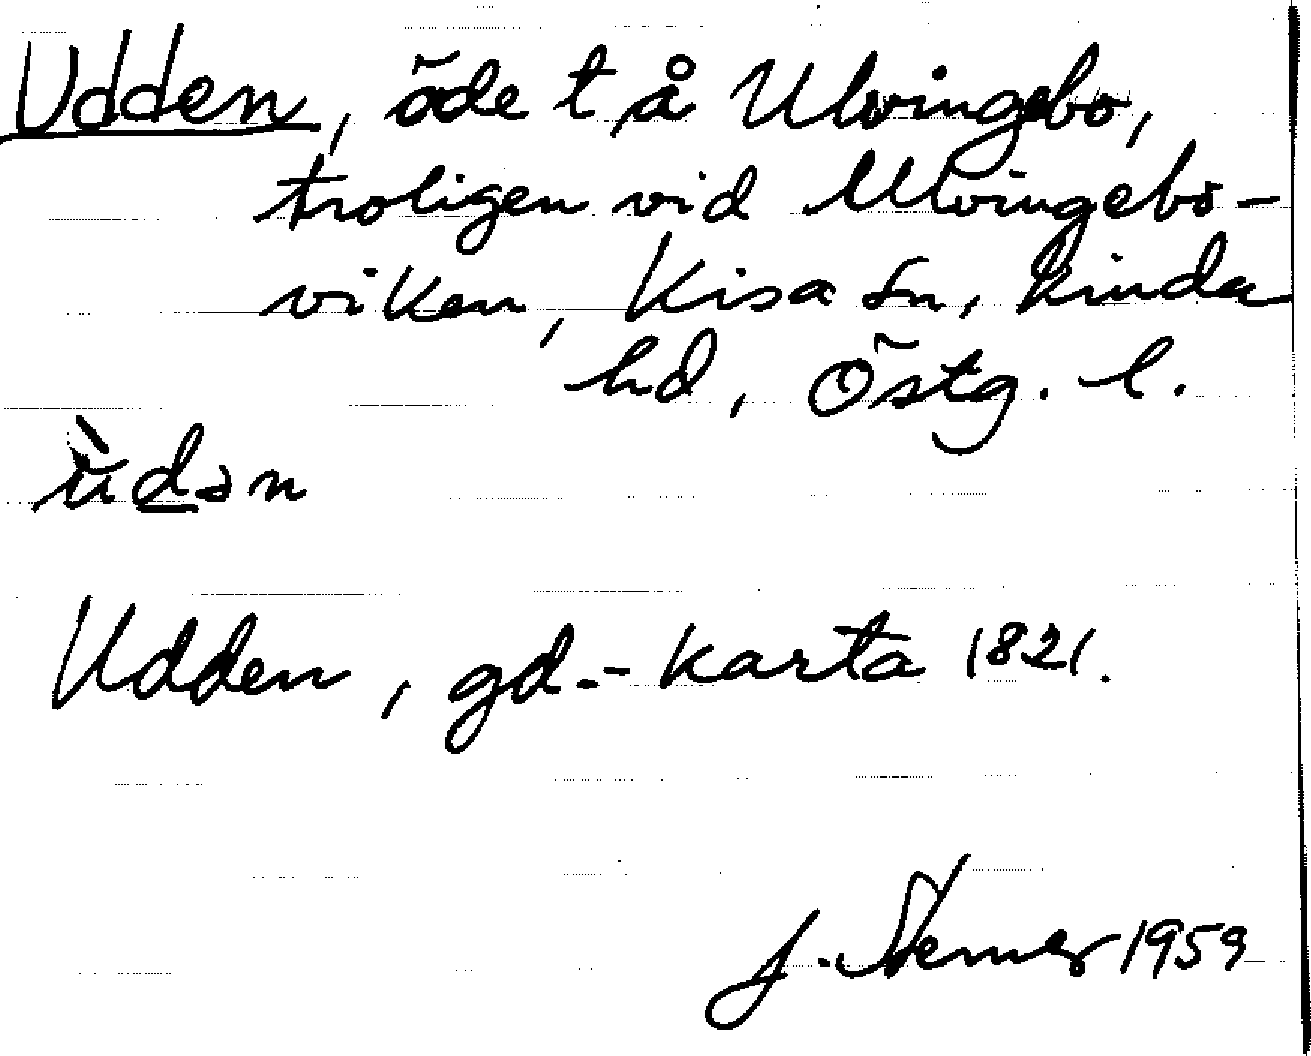 Udden, öde t å Ulvingebo,
troligen vid Ulvingebo-
viken, Kisa sn, Kinda
hd, Östg. l.
ùdən
Udden, gd.-karta 1821.
J. 1959